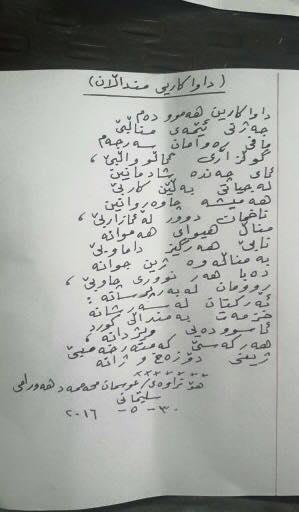 ( داواکاریی منداڵان )
داواکارین هەموو دەم
جەژنی ئێمەی مناڵبێ
مافی ڕەوامان سەرجەم
گوێزاری ئاڵووالابێ،
ئای چەندە شادمانین
لە حیاتی بەڵێن کاربێ
هەمیشە چاوەڕوانین
ناخمان دوور لە ئازاربێ،
مناڵ هیوای هەموانە
نابێ هەرگیز داماوبێ
بە مناڵەوە ژین جوانە
دەبا هەر نووری چاوبێ،
ڕوومان لە بەرپرسانە:
ئەرکتان لەسەرشانە
خزمەت بە منداڵی کورد
ئاسوودەیی ویژدانە،
هەرکەسێ کەمتەرخەمبێ
ژینی دۆزەخ و ژانە
هۆنراوەی/ عوسمان محەمەد هەورامی
سلێمانی
٣٠ - ٥ - ٢٠١٦